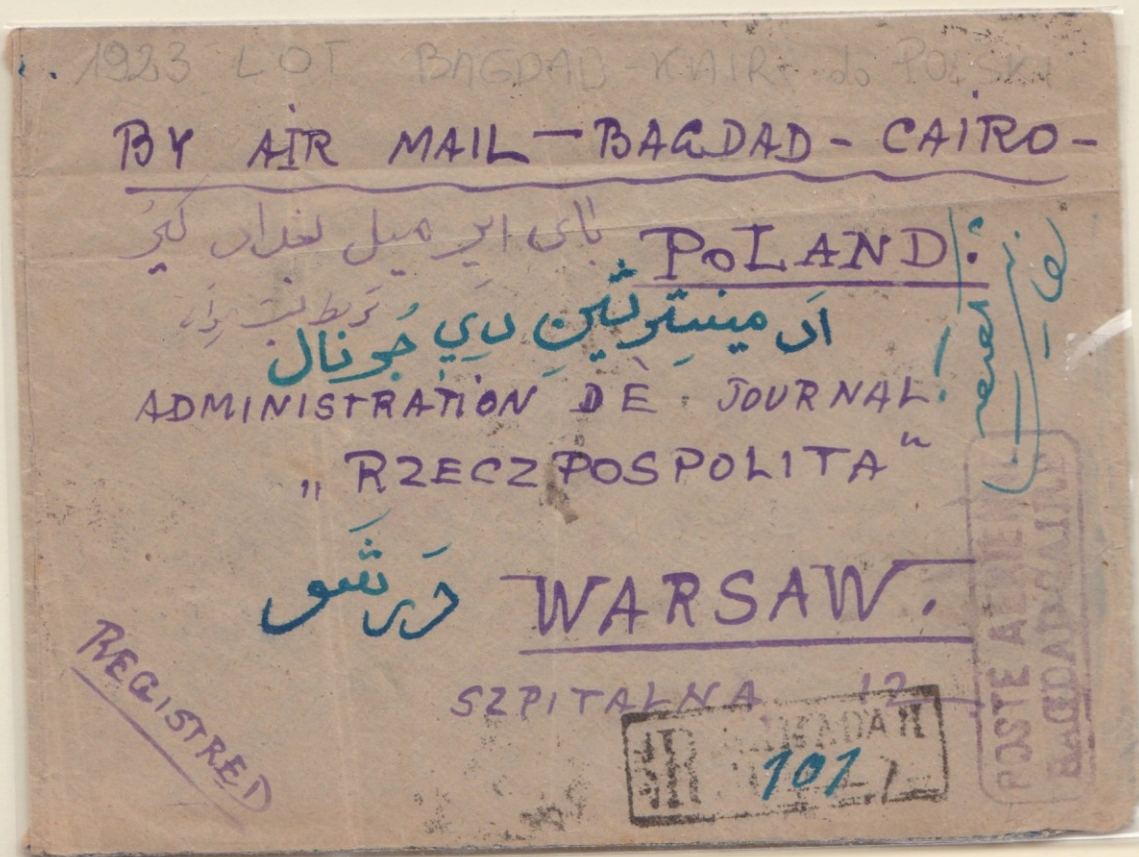 1923 LOT BAGDAD-KAIR do POLSKI
BY AIR MAIL - BAGDAD - CAIRO -
بای ایر میل بغداد کیر
POLAND:
ادمینیسترشین دي جُرنال
ADMINISTRATION DE JOURNAL
„RZECZPOSPOLITA"
WARSAW.
SZPITALNA 12
REGISTRED
HAMADAN
101
POSTE AERIENNE
BAGDAD CAIRE